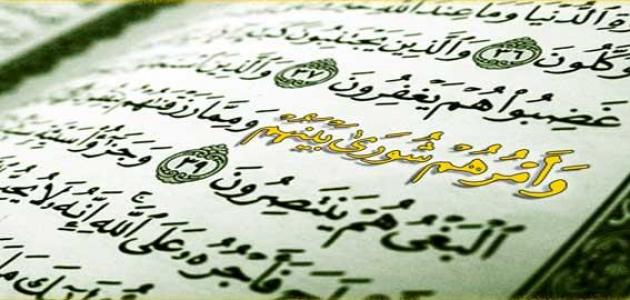 ٱلدُّنْيَا وَمَا عِندَ ٱللَّهِ
وَكَّلُونَ ٣٦ وَٱلَّذِينَ يَجْتَنِبُونَ
غَضِبُوا۟ هُمْ يَغْفِرُونَ ٣٧ وَٱلَّذِينَ
وَأَمْرُهُمْ شُورَىٰ بَيْنَهُمْ وَمِمَّا رَزَقْنَٰهُمْ
ٱلْبَغْىُ هُمْ يَنتَصِرُونَ ٣٩ وَجَزَٰٓؤُا۟
فَأَجْرُهُۥ عَلَى ٱللَّهِ إِنَّهُۥ لَا
مَا